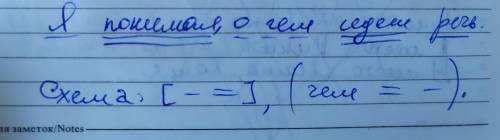 Я понимал, о чем идет речь.
Схема: [ - = ], ( чем = - ).
ля заметок/Notes